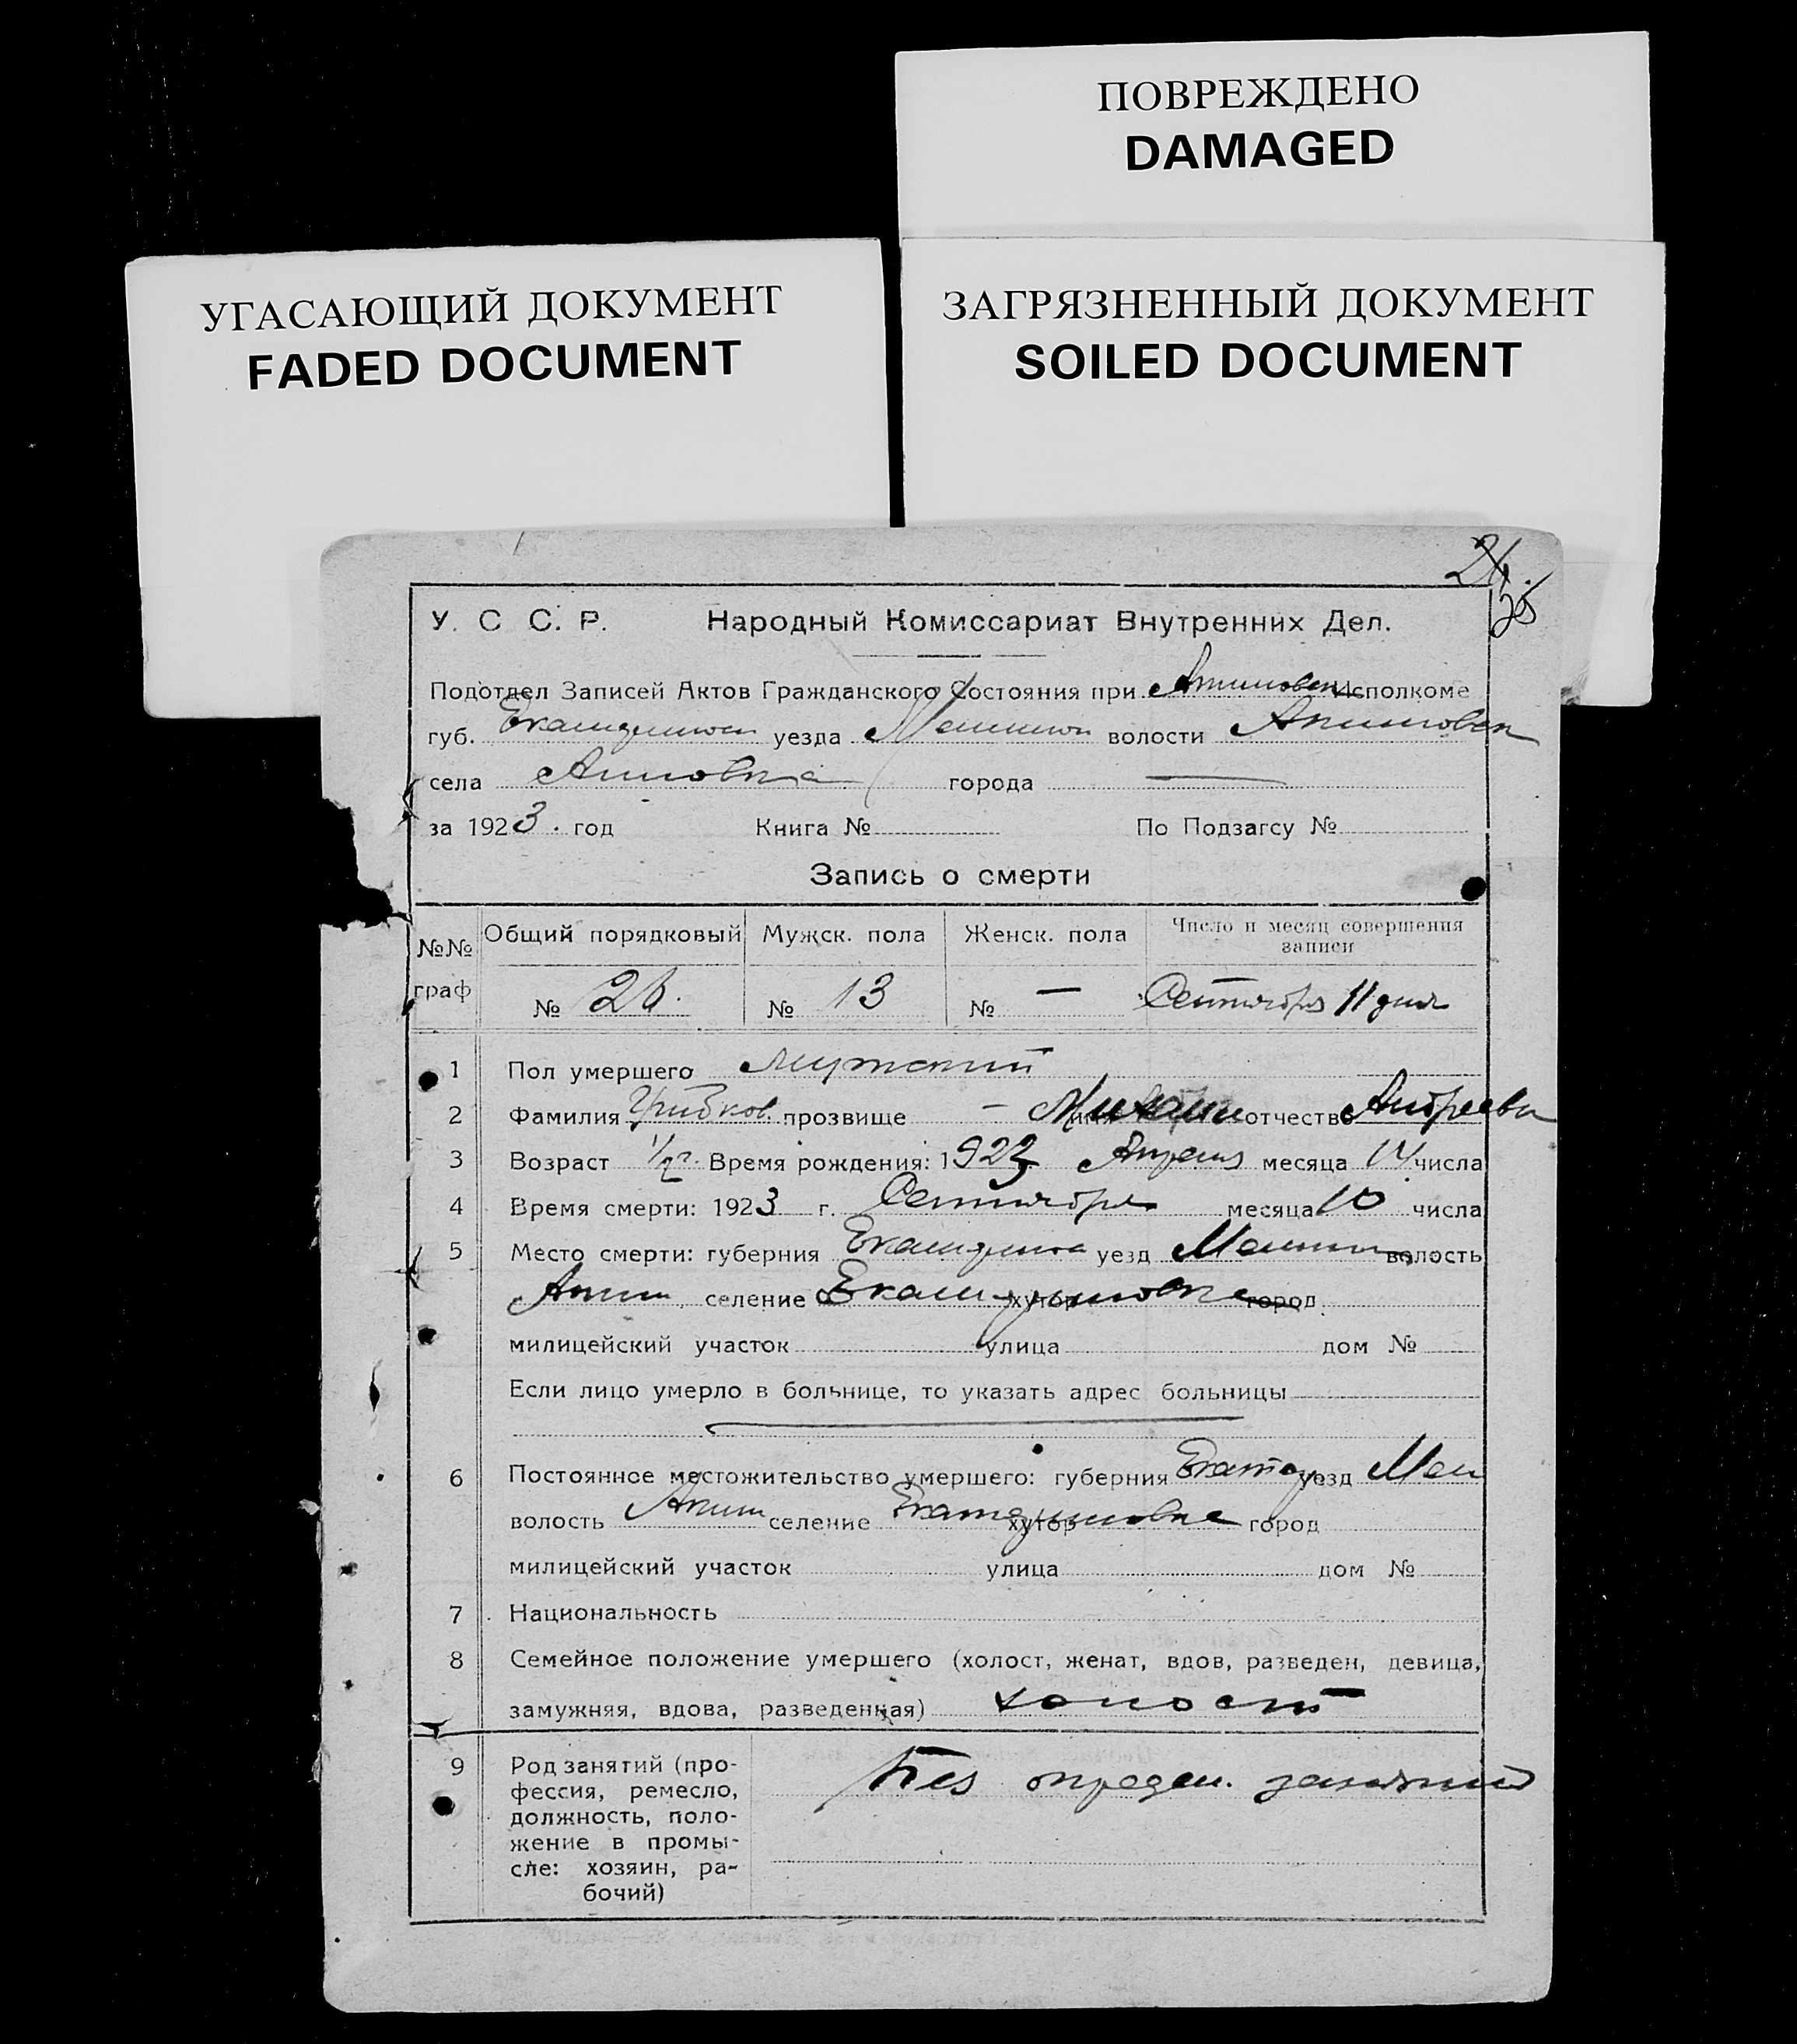 ПОВРЕЖДЕНО
DAMAGED
УГАСАЮЩИЙ ДОКУМЕНТ
FADED DOCUMENT
ЗАГРЯЗНЕННЫЙ ДОКУМЕНТ
SOILED DOCUMENT
У. С С. Р. Народный Комиссариат Внутренних Дел.
Подотдел Записей Актов Гражданского Состояния при Исполкоме
губ. уезда волости
села города
за 1923. год Книга № По Подзагсу №
Запись о смерти
№№ граф Общий порядковый Мужск. пола Женск. пола Число и месяц совершения записи
№ 26. № 13 № — Сентября 11 дня
1 Пол умершего мужской
2 Фамилия Грибков. прозвище — имя Михаил отчество
3 Возраст 1/2 г. Время рождения: 1923 Апреля месяца 14 числа
4 Время смерти: 1923 г. Сентября месяца 10 числа
5 Место смерти: губерния уезд волость
Аким. селение Екатериновка хутор город
милицейский участок улица дом №
Если лицо умерло в больнице, то указать адрес больницы
6 Постоянное местожительство умершего: губерния Екатер уезд Мел
волость Аким селение Екатериновке хутор город
милицейский участок улица дом №
7 Национальность
8 Семейное положение умершего (холост, женат, вдов, разведен, девица,
замужняя, вдова, разведенная) холост
9 Род занятий (про- Без определ. занятий
фессия, ремесло,
должность, поло-
жение в промы-
сле: хозяин, ра-
бочий)